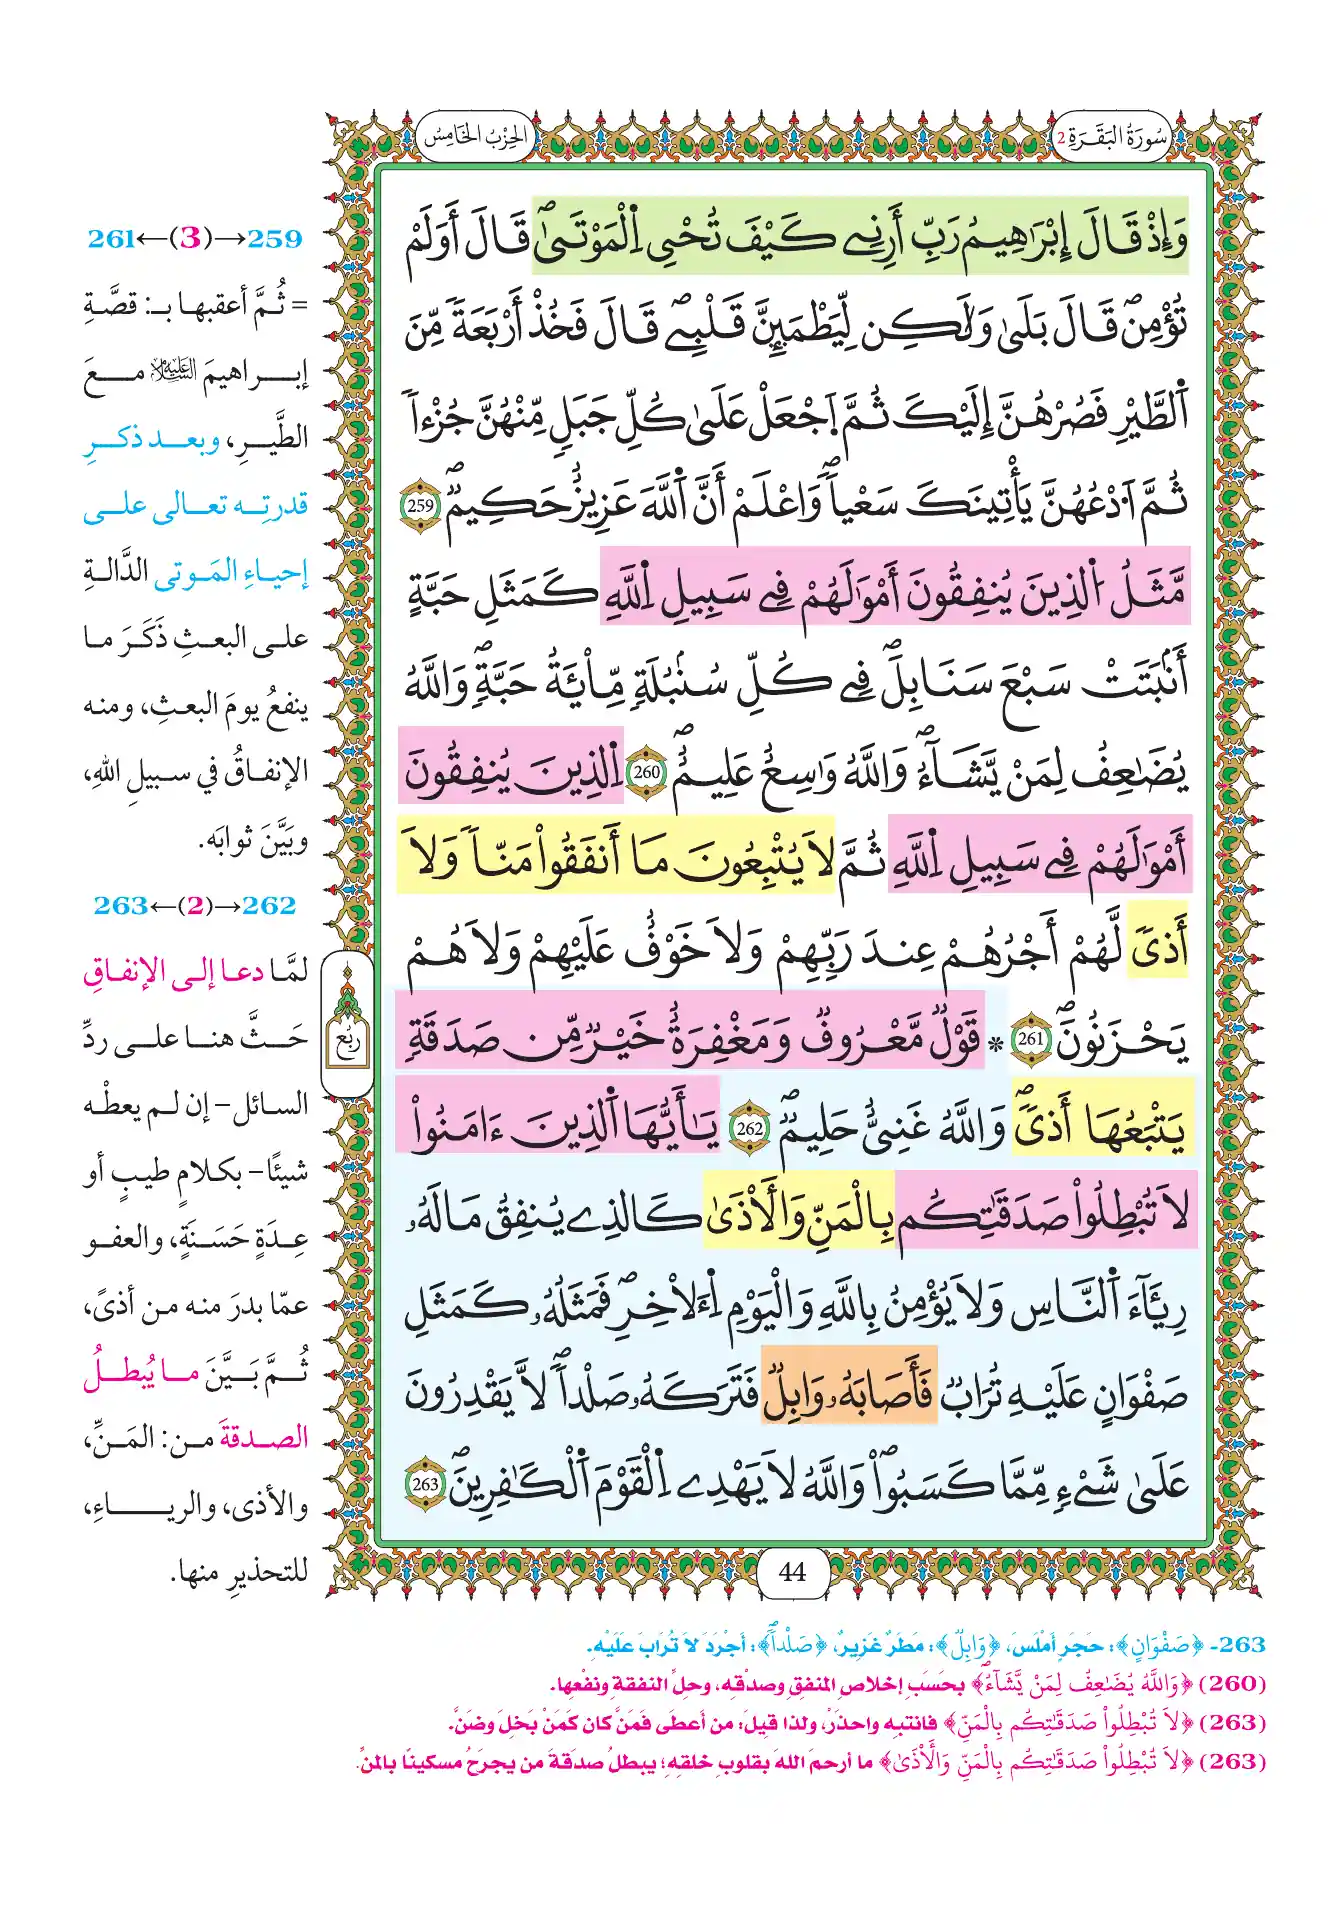 سُورَةُ البَقَرَةِ 2
الحِزْبُ الخَامِسُ
وَإِذْ قَالَ إِبْرَٰهِيمُ رَبِّ أَرِنِے كَيْفَ تُحْيِ اِ۬لْمَوْتَىٰۖ قَالَ أَوَلَمْ
تُؤْمِنۖ قَالَ بَلَىٰ وَلَٰكِن لِّيَطْمَئِنَّ قَلْبِےۖ قَالَ فَخُذْ أَرْبَعَةً مِّنَ
اَ۬لطَّيْرِ فَصُرْهُنَّ إِلَيْكَ ثُمَّ اَ۪جْعَلْ عَلَىٰ كُلِّ جَبَلٍ مِّنْهُنَّ جُزْءاً
ثُمَّ اَ۟دْعُهُنَّ يَأْتِينَكَ سَعْياًۖ وَاعْلَمْ أَنَّ اَ۬للَّهَ عَزِيزٌ حَكِيمٌۖ 259
مَّثَلُ اُ۬لذِينَ يُنفِقُونَ أَمْوَٰلَهُمْ فِے سَبِيلِ اِ۬للَّهِ كَمَثَلِ حَبَّةٍ
أَنۢبَتَتْ سَبْعَ سَنَابِلَۖ فِے كُلِّ سُنۢبُلَةٍ مِّاْئَةُ حَبَّةٍۖ وَاللَّهُ
يُضَٰعِفُ لِمَنْ يَّشَآءُۖ وَاللَّهُ وَٰسِعٌ عَلِيمٌۖ 260 اِ۬لذِينَ يُنفِقُونَ
أَمْوَٰلَهُمْ فِے سَبِيلِ اِ۬للَّهِ ثُمَّ لَا يُتْبِعُونَ مَا أَنفَقُواْ مَنّاً وَلَا
أَذىً لَّهُمْ أَجْرُهُمْ عِندَ رَبِّهِمْ وَلَا خَوْفٌ عَلَيْهِمْ وَلَا هُمْ
يَحْزَنُونَۖ 261 * قَوْلٌ مَّعْرُوفٌ وَمَغْفِرَةٌ خَيْرٌ مِّن صَدَقَةٍ
يَتْبَعُهَا أَذىًۖ وَاللَّهُ غَنِيٌّ حَلِيمٌۖ 262 يَٰأَيُّهَا اَ۬لذِينَ ءَامَنُواْ
لَا تُبْطِلُواْ صَدَقَٰتِكُم بِالْمَنِّ وَالْأَذَىٰ كَالذِے يُنفِقُ مَالَهُۥ
رِئَآءَ اَ۬لنَّاسِ وَلَا يُؤْمِنُ بِاللَّهِ وَالْيَوْمِ اِ۬لْأٓخِرِۖ فَمَثَلُهُۥ كَمَثَلِ
صَفْوَانٍ عَلَيْهِ تُرَابٌ فَأَصَابَهُۥ وَابِلٌ فَتَرَكَهُۥ صَلْداًۖ لَّا يَقْدِرُونَ
عَلَىٰ شَےْءٍ مِّمَّا كَسَبُواْۖ وَاللَّهُ لَا يَهْدِے اِ۬لْقَوْمَ اَ۬لْكَٰفِرِينَۖ 263
ربع
44
259→(3)←261
= ثُمَّ أعقبها بـ: قصَّةِ
إبراهيمَ عليه السلام معَ
الطَّيرِ، وبعد ذكرِ
قدرتِه تعالى على
إحياءِ المَوتى الدَّالةِ
على البعثِ ذَكَرَ ما
ينفعُ يومَ البعثِ، ومنه
الإنفاقُ في سبيلِ اللهِ،
وبَيَّنَ ثوابَه.
262→(2)←263
لمَّا دعا إلى الإنفاقِ
حَثَّ هنا على ردِّ
السائل- إن لم يعطْه
شيئًا- بكلامٍ طيبٍ أو
عِدَةٍ حَسَنَةٍ، والعفو
عمّا بدرَ منه من أذىً،
ثُمَّ بَيَّنَ ما يُبطلُ
الصدقةَ من: المَنِّ،
والأذى، والرياءِ،
للتحذيرِ منها.
263- ﴿صَفْوَانٍ﴾: حَجَرٍ أمْلَسَ، ﴿وَابِلٌ﴾: مَطَرٌ غَزِيرٌ، ﴿صَلْداًۖ﴾: أجْرَدَ لاَ تُرَابَ عَلَيْهِ.
(260) ﴿وَاللَّهُ يُضَٰعِفُ لِمَنْ يَّشَآءُۖ﴾ بحَسَبِ إخلاصِ المنفقِ وصدْقِه، وحلِّ النفقةِ ونفْعِها.
(263) ﴿لَا تُبْطِلُواْ صَدَقَٰتِكُم بِالْمَنِّ﴾ فانتبه واحذرْ، ولذا قيلَ: من أعطى فَمَنَّ كان كَمَنْ بَخِلَ وضَنَّ.
(263) ﴿لَا تُبْطِلُواْ صَدَقَٰتِكُم بِالْمَنِّ وَالْأَذَىٰ﴾ ما أرحمَ اللهَ بقلوبِ خلقِهِ؛ يبطلُ صدقةَ من يجرحُ مسكينًا بالمنِّ.